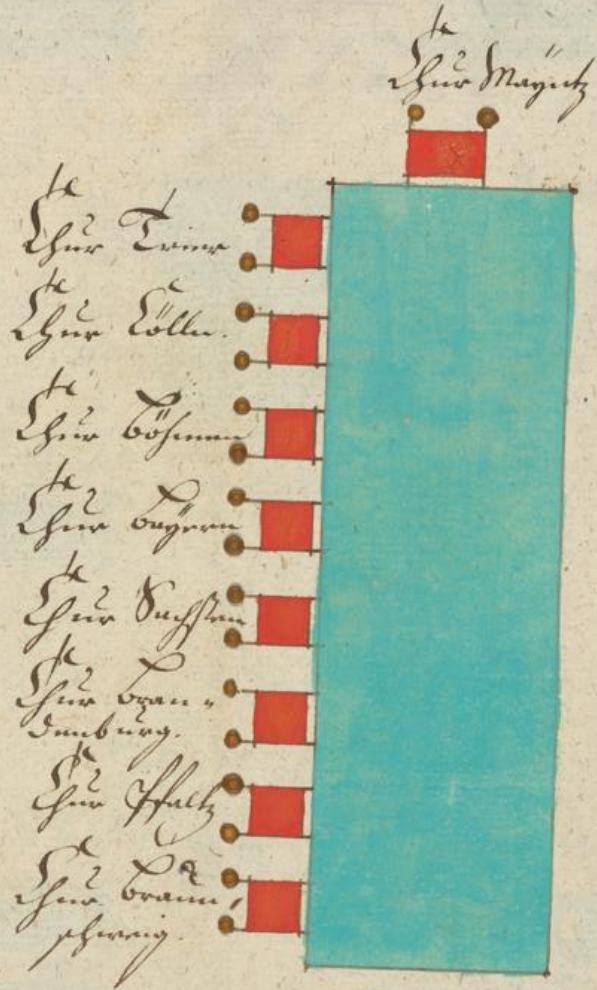 Chur Mayntz
Chur Trier
Chur Cölln.
Chur Böhmen
Chur Bayern
Chur Sachsen
Chur Bran-
denburg.
Chur Pfaltz
Chur Braun-
schweig.